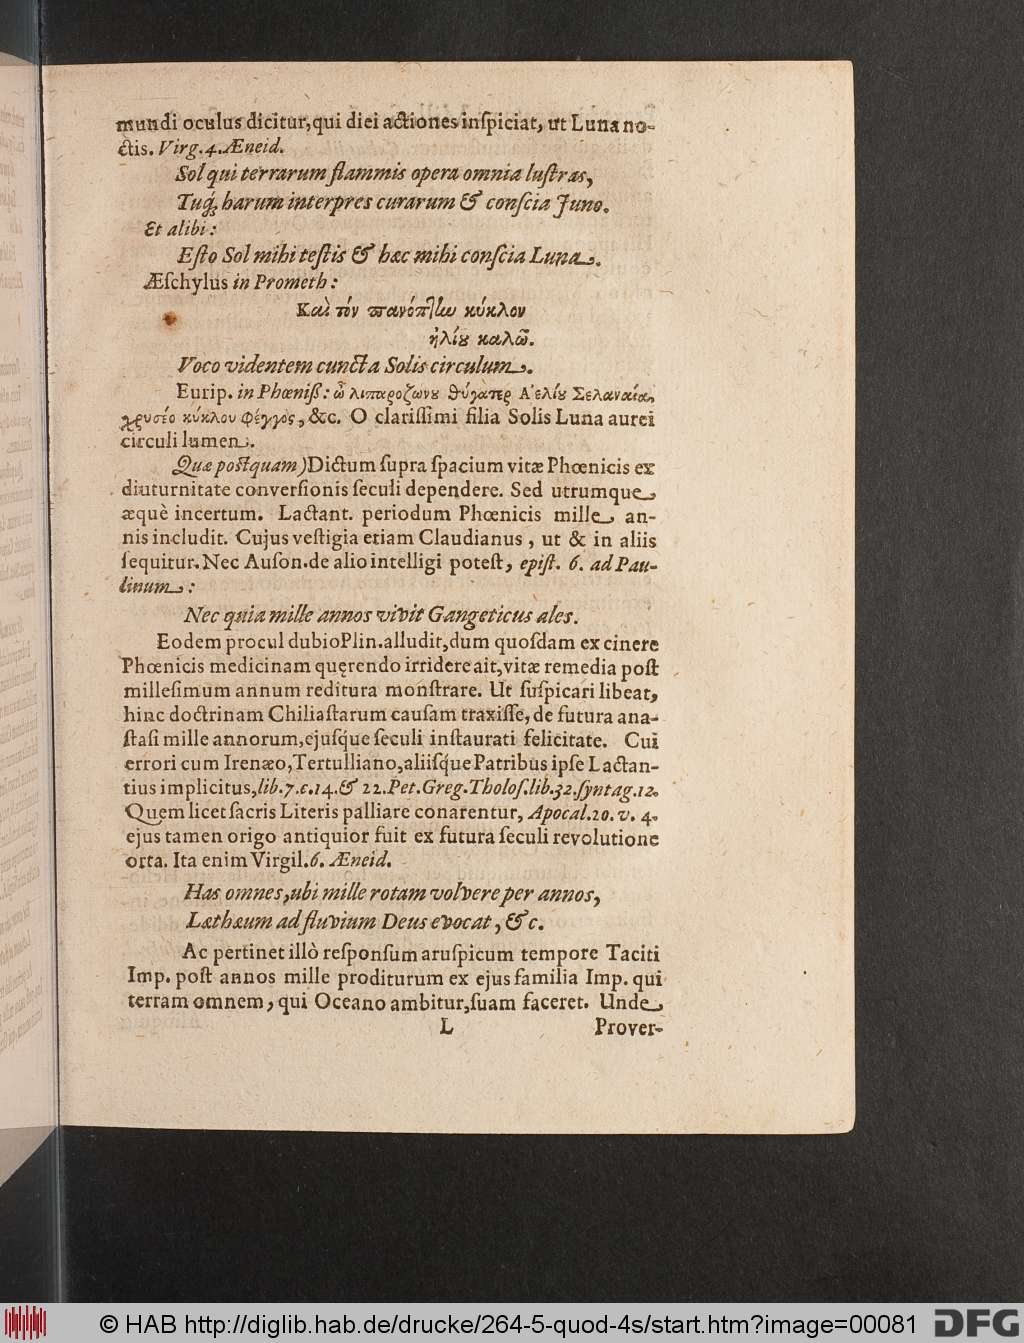 mundi oculus dicitur, qui diei actiones inſpiciat, ut Luna no-
ctis. Virg. 4. Æneid.
Sol qui terrarum flammis opera omnia luſtras,
Tuq́; harum interpres curarum & conſcia Juno.
Et alibi:
Eſto Sol mihi teſtis & hæc mihi conſcia Luna.
Æſchylus in Prometh:
Καὶ τόν πανόπτίω κύκλον
ἡλίȣ καλῶ.
Voco videntem cuncta Solis circulum.
Eurip. in Phœniſſ: ὦ λιπαροζωνȣ θύγατερ Ἀελίȣ Σελαναία,
χρυσέο κύκλου φέγγος, &c. O clariſſimi filia Solis Luna aurei
circuli lumen.
Quæ postquam) Dictum ſupra ſpacium vitæ Phœnicis ex
diuturnitate converſionis ſeculi dependere. Sed utrumque
æquè incertum. Lactant. periodum Phœnicis mille an-
nis includit. Cujus veſtigia etiam Claudianus, ut & in aliis
ſequitur. Nec Auſon. de alio intelligi poteſt, epiſt. 6. ad Pau-
linum:
Nec quia mille annos vivit Gangeticus ales.
Eodem procul dubio Plin. alludit, dum quoſdam ex cinere
Phœnicis medicinam quęrendo irridere ait, vitæ remedia poſt
milleſimum annum reditura monſtrare. Ut ſuſpicari libeat,
hinc doctrinam Chiliaſtarum cauſam traxiſſe, de futura ana-
ſtaſi mille annorum, ejuſq́ue ſeculi inſtaurati felicitate. Cui
errori cum Irenæo, Tertulliano, aliiſq́ue Patribus ipſe Lactan-
tius implicitus, lib. 7. c. 14. & 22. Pet. Greg. Tholoſ. lib. 32. ſyntag. 12.
Quem licet ſacris Literis palliare conarentur, Apocal. 20. v. 4.
ejus tamen origo antiquior fuit ex futura ſeculi revolutione
orta. Ita enim Virgil. 6. Æneid.
Has omnes, ubi mille rotam volvere per annos,
Læthæum ad fluvium Deus evocat, & c.
Ac pertinet illò reſponſum aruſpicum tempore Taciti
Imp. poſt annos mille proditurum ex ejus familia Imp. qui
terram omnem, qui Oceano ambitur, ſuam faceret. Unde
L Prover-
© HAB http://diglib.hab.de/drucke/264-5-quod-4s/start.htm?image=00081 DFG